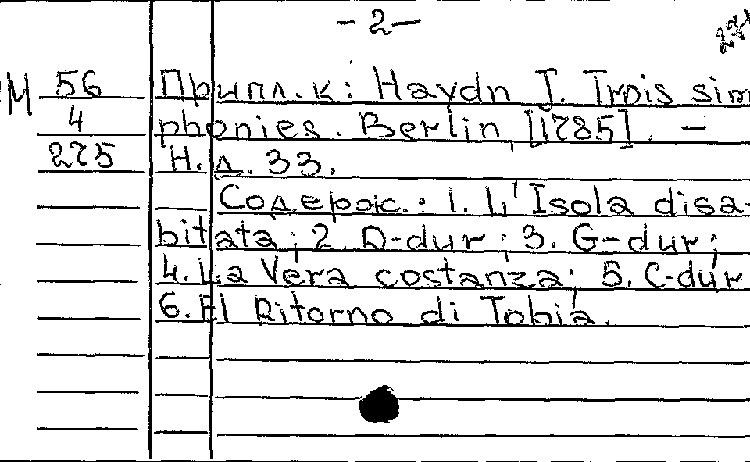 -2-
М 56 Припл. к: Haydn J. Trois sim
4 phonies. Berlin, [1785]. –
275 Н.д. 33.
Содерж.: 1. L'Isola disa-
bitata; 2. D-dur; 3. G-dur;
4. La Vera costanza; 5. C-dur
6. El Ritorno di Tobia.